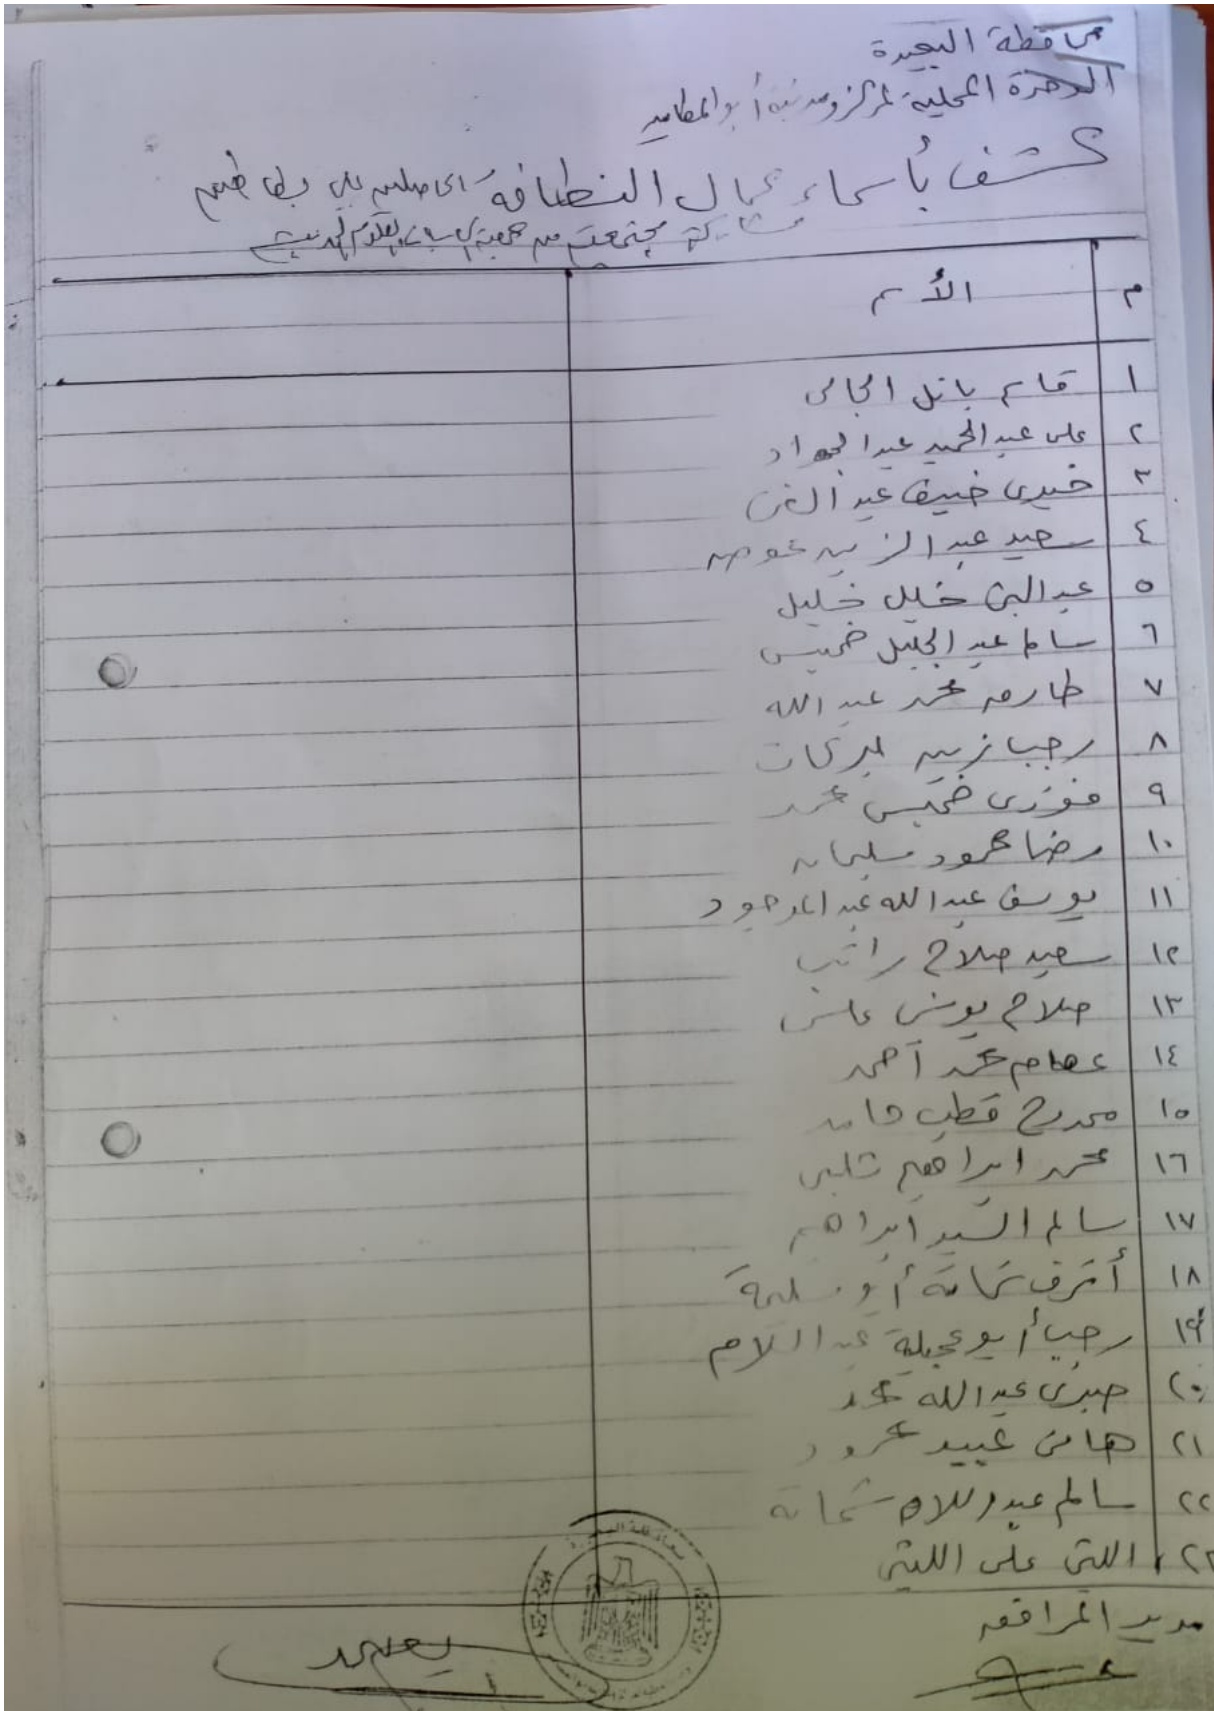 محافظة البحيرة
الوحدة المحلية لمركز ومدينة أبو المطامير
كشف بأسماء عمال النظافة الحاصلين على
مشاركة مجتمعية من جمعية
م الأسم
١ قاسم الجالى
٢ على عبد الحميد عبد الجواد
٣ خيرى ضيف عبد الغنى
٤ سعيد عبد عوض
٥ خليل خليل
٦ سالم عبد الجليل خميس
٧ طارق محمد عبد الله
٨ رجب بركات
٩ فوزى خميس محمد
١٠ رضا محمود سليمان
١١ يوسف عبد الله عبد الموجود
١٢ سعيد صلاح راتب
١٣ صلاح يونس
١٤ عصام محمد أحمد
١٥ ممدوح قطب حامد
١٦ محمد ابراهيم شلبى
١٧ سالم السيد ابراهيم
١٨ أشرف شحاته أبو سليمة
١٩ رجب أبو عجيلة عبد السلام
٢٠ صبرى عبد الله محمد
٢١ هانى عبيد محمود
٢٢ سالم شحاته
٢٣ الليثى على الليثى
مدير المرافق
يعتمد